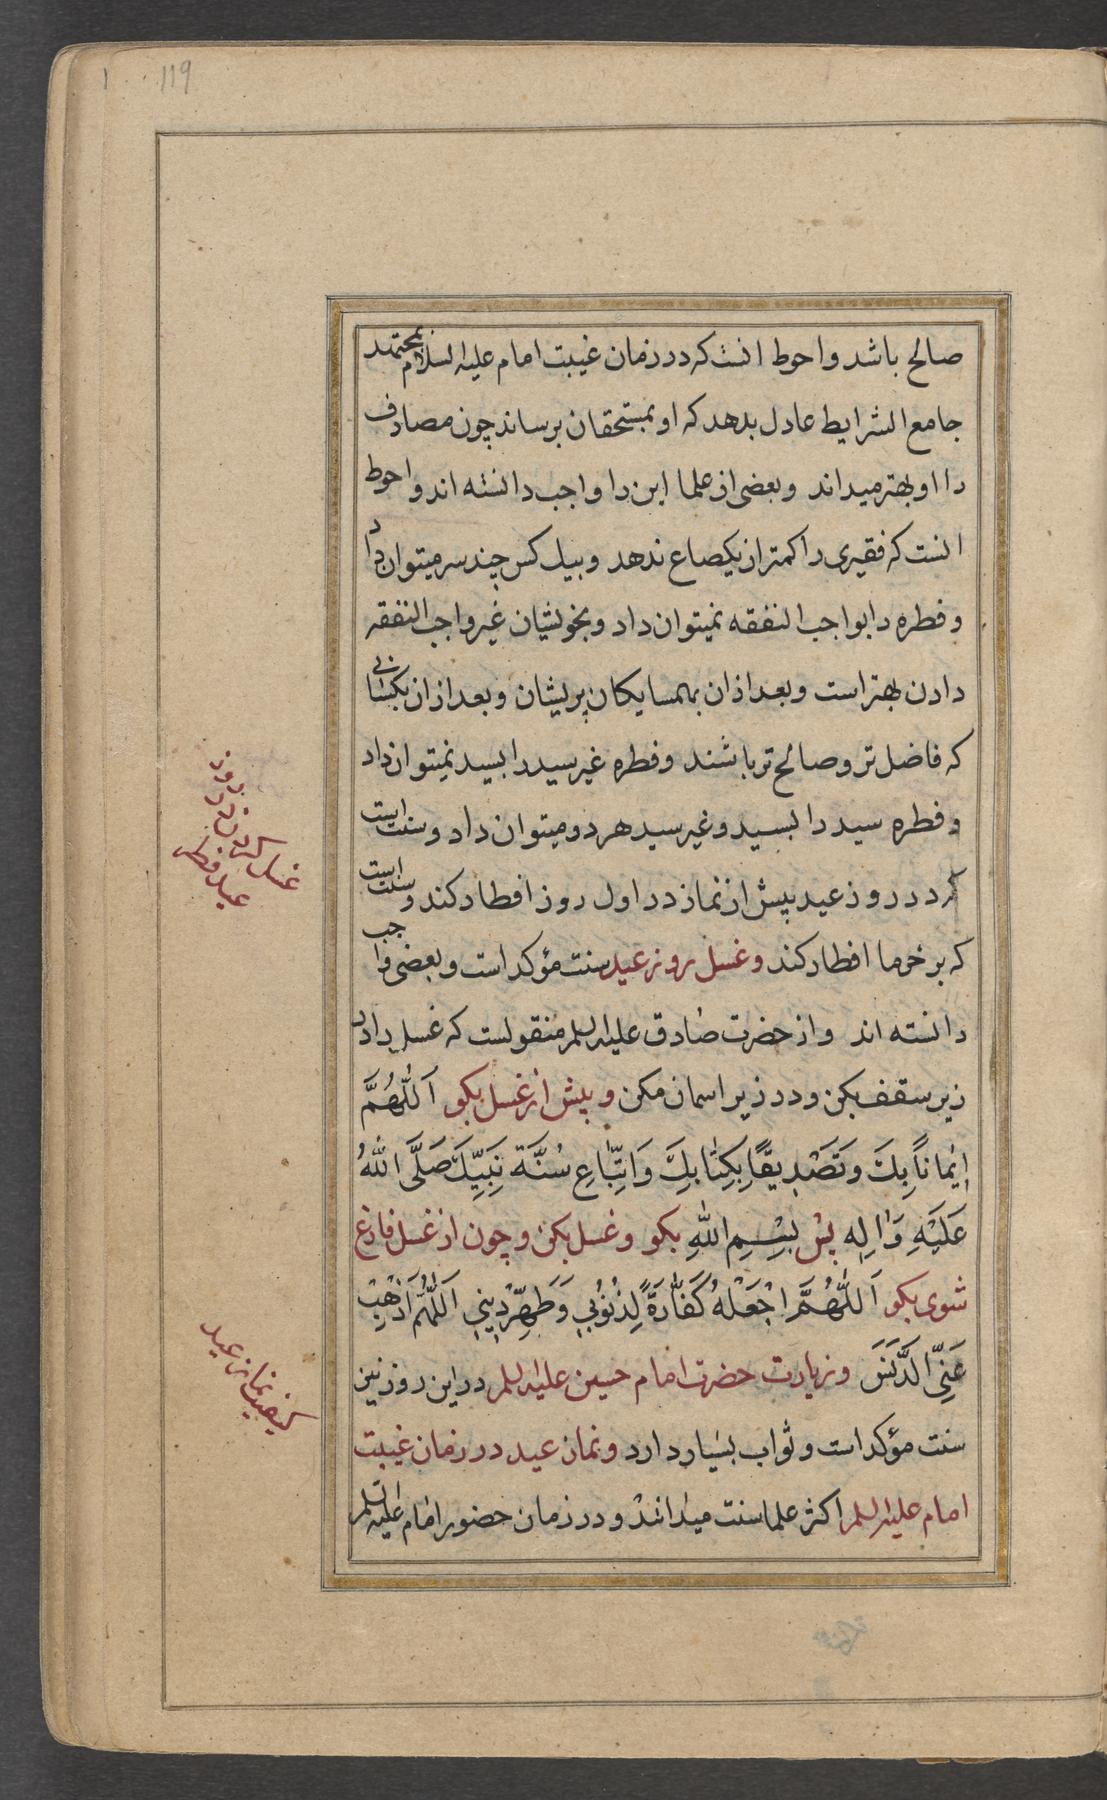 119
صالح باشد و احوط انست که در زمان غیبت امام علیه السلام بمجتهد
جامع الشرایط عادل بدهد که او بمستحقان برساند چون مصارف
را او بهتر میداند و بعضی از علما این را واجب دانسته اند و احوط
انست که فقیری را کمتر از یکصاع ندهد و بیک کس چند سر میتوان داد
و فطره را بواجب النفقه نمیتوان داد و بخویشان غیر واجب النفقه
دادن بهتر است و بعد از ان بهمسایکان پریشان و بعد از ان بکسانی
که فاضل تر و صالح تر باشند و فطره غیر سید را بسید نمیتوان داد
و فطره سید را بسید و غیر سید هر دو میتوان داد و سنت است
که در روز عید پیش از نماز در اول روز افطار کند و سنت است
که بر خرما افطار کند و غسل روز عید سنت مؤکد است و بعضی واجب
دانسته اند و از حضرت صادق علیه السلم منقولست که غسل را در
زیر سقف بکن و در زیر اسمان مکن و پیش از غسل بکو اَللّٰهُمَّ
اِیمٰاناً بِكَ وَتَصْدِیقاً بِکِتٰابِكَ وَاتِّبٰاعِ سُنَّةِ نَبِیِّكَ صَلَّی اللّٰهُ
عَلَیْهِ وَاٰلِهِ پس بِسْمِ اللّٰهِ بکو و غسل بکن و چون از غسل فارغ
شوی بکو اَللّٰهُمَّ اجْعَلْهُ کَفّٰارَةً لِذُنُوبِی وَطَهِّرْ دِینِی اَللّٰهُمَّ اَذْهِبْ
عَنِّی الدَّنَسَ و زیارت حضرت امام حسین علیه السلم در این روز نیز
سنت مؤکد است و ثواب بسیار دارد و نماز عید در زمان غیبت
امام علیه السلم اکثر علما سنت میدانند و در زمان حضور امام علیه السلم
غسل کردن در روز
عید فطر
کیفیت نماز عید